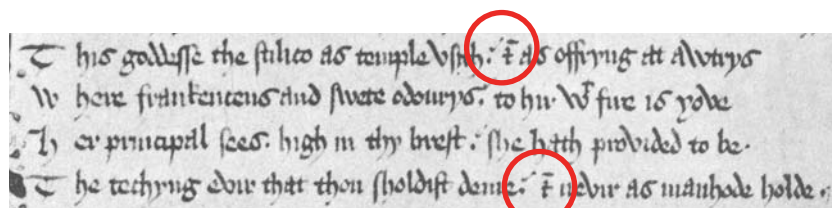 This goddesse the stilico as temple vsith: ⁊̄ as offryng att awtrys
Where frankencens and swete odourys. to hir wᵗ fire is yove
Her principal sees. high in thy brest: she hath provided to be.
The techyng evir that thou sholdist deme: ⁊̄ nevir as manhode holde.